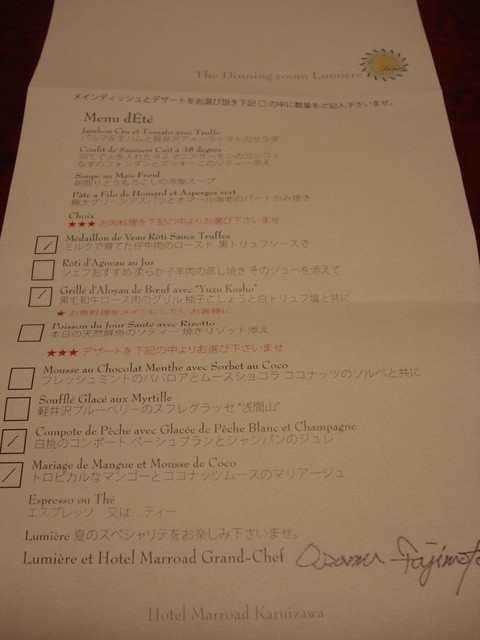 The Dinning room Lumière
メインディッシュとデザートをお選び頂き下記 □ の中に数量をご記入下さいませ。
Menu dÉté
Jambon Cru et Tomato avec Truffe
パルマ産生ハムと軽井沢アメーラトマトのサラダ
Confit de Saumon Cuit à 38 degrés
のコンフィ
なすのフォンダンとズッキーニのソティー添え
Soupe au Maïs Froid
朝取りとうもろこしの冷製スープ
Pâte a Filo de Homard et Asperges vert
極大グリーンアスパラとオマール海老のパートフィロ包み焼き
Choix
★★★ お肉料理を下記の中よりお選び下さいませ
Médaillon de Veau Rôti Sauce Truffes
ミルクで育てた仔牛肉のロースト 黒トリュフソースで
Rôti d'Agneau au Jus
シェフおすすめ 柔らか子羊肉の蒸し焼き そのジューを添えて
Grillé d'Aloyau de Bœuf avec "Yuzu Kosho"
黒毛和牛ロース肉のグリル 柚子こしょうと白トリュフ塩と共に
★ お魚料理をメインにしたいお客様に
Poisson du Jour Sauté avec Rizotto
本日の天然鮮魚のソティー 焼きリゾット添え
★★★ デザートを下記の中よりお選び下さいませ
Mousse au Chocolat Menthe avec Sorbet au Coco
フレッシュミントのババロアとムースショコラ ココナッツのソルベと共に
Soufflé Glacé aux Myrtille
軽井沢ブルーベリーのスフレグラッセ "浅間山"
Compote de Pêche avec Glacée de Pêche Blanc et Champagne
白桃のコンポート ペーシュブランとシャンパンのジュレ
Mariage de Mangue et Mousse de Coco
トロピカルなマンゴーとココナッツムースのマリアージュ
Espresso ou Thé
エスプレッソ 又は ティー
Lumière 夏のスペシャリテをお楽しみ下さいませ。
Lumière et Hotel Marroad Grand-Chef Osamu Fujimoto
Hotel Marroad Karuizawa